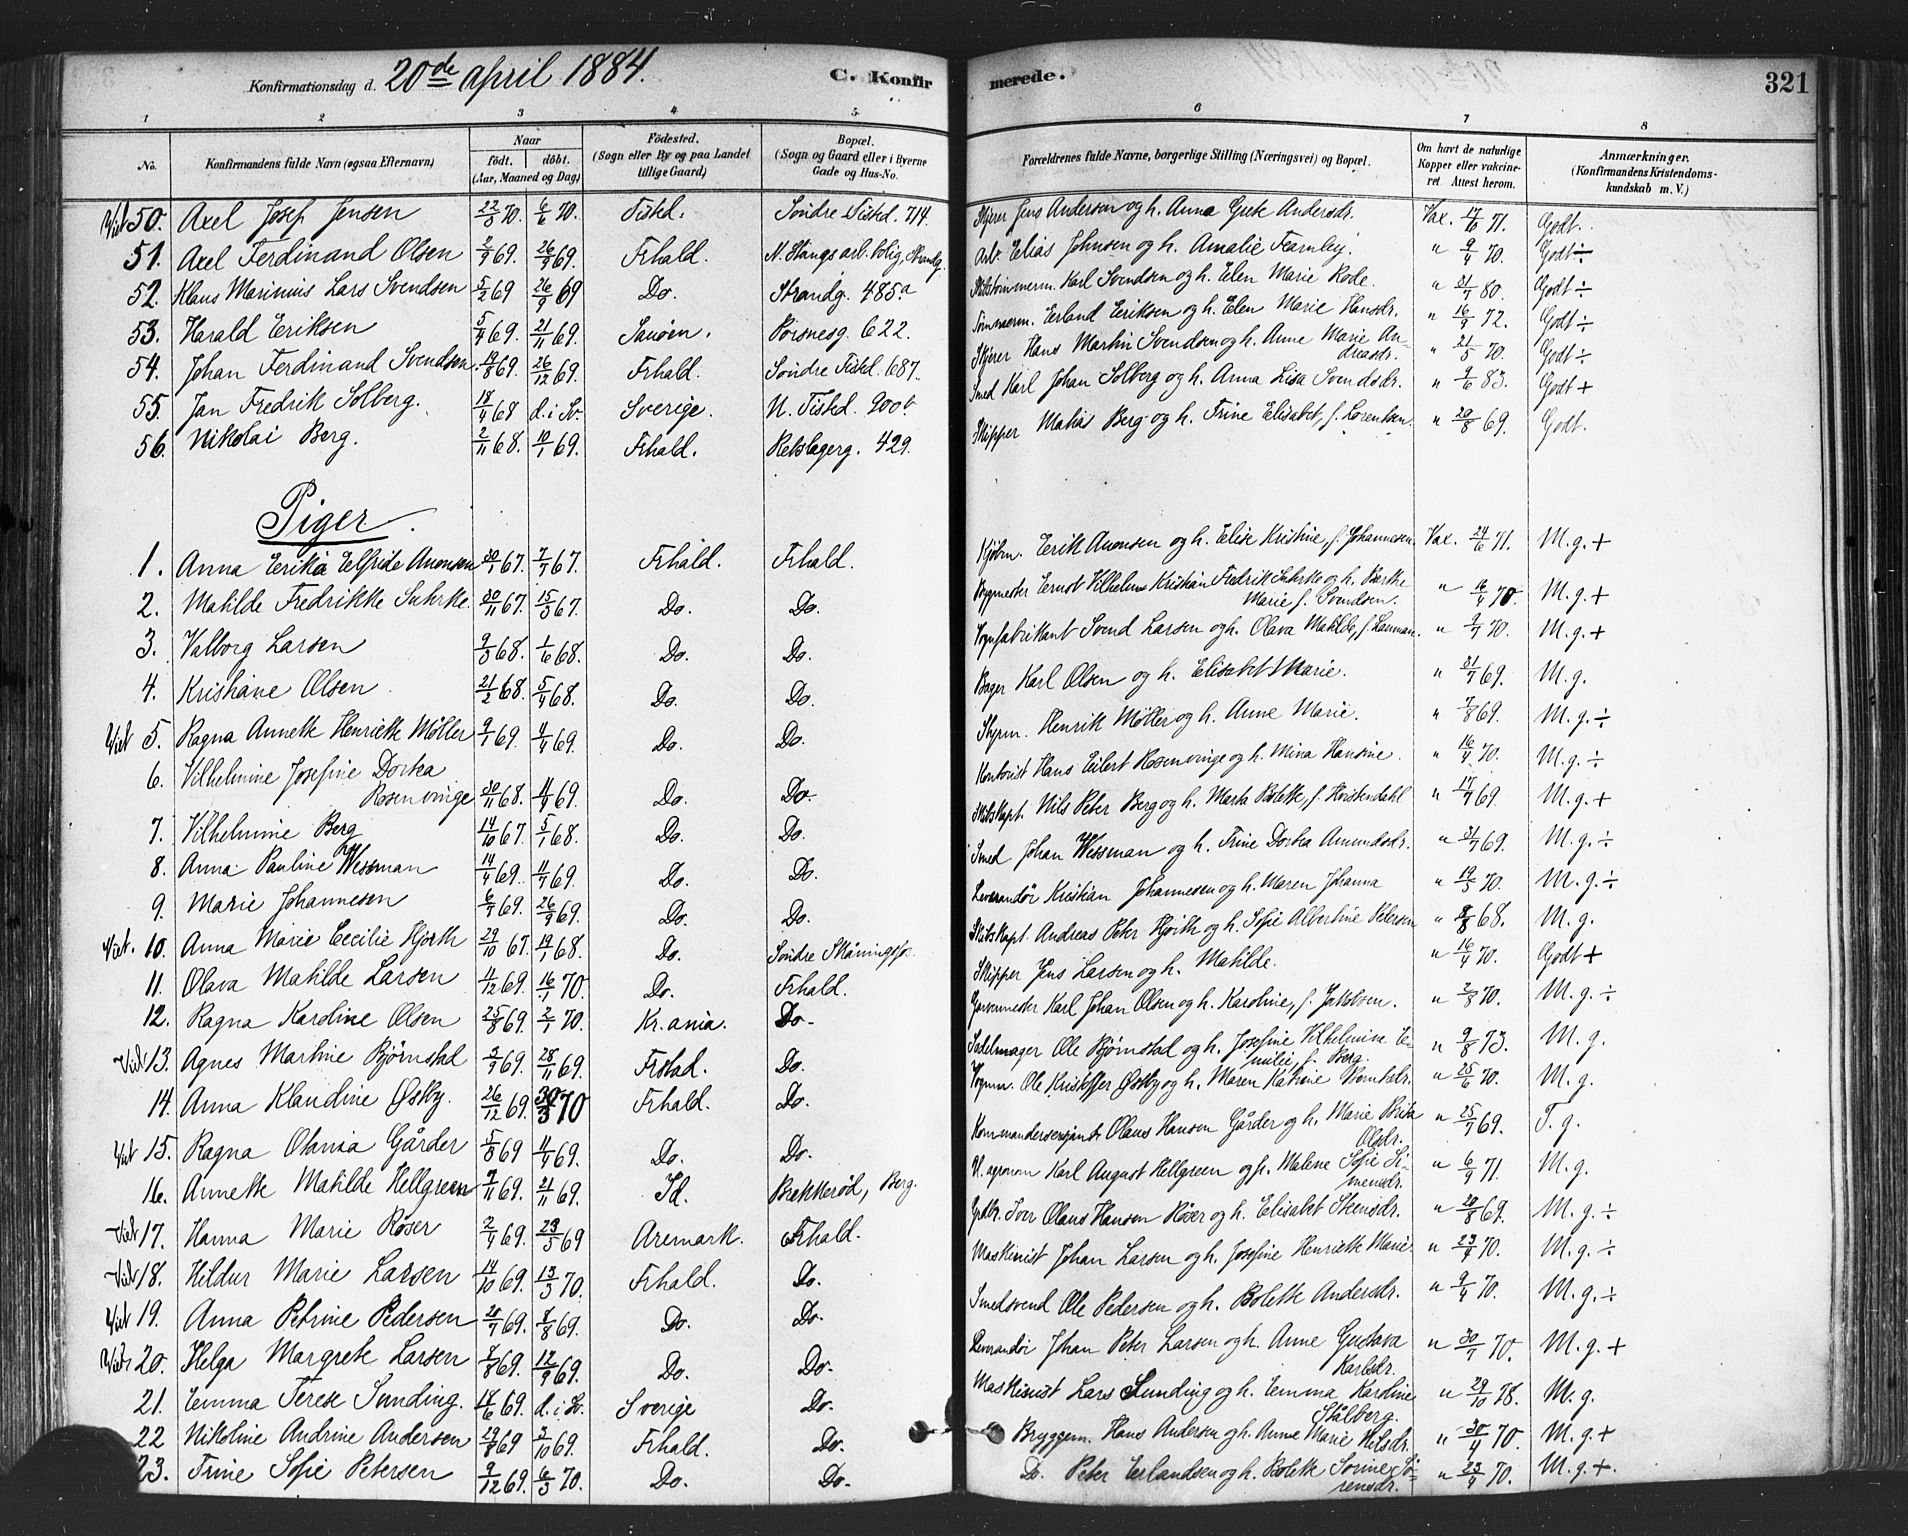 Konfirmationsdag d. 20de april 1884. C. Konfirmerede. 321
1 2 3 4 5 6 7 8
No. Konfirmandens fulde Navn (ogsaa Efternavn) Naar født. døbt. (Aar, Maaned og Dag) Fødested. (Sogn eller By og paa Landet tillige Gaard) Bopæl. (Sogn og Gaard eller i Byerne Gade og Hus-No. Forældrenes fulde Navne, borgerlige Stilling (Næringsvei) og Bopæl. Om havt de naturlige Kopper eller vakcineret Attest herom. Anmærkninger. (Konfirmandens Kristendomskundskab m. V.)
50. Axel Josef Jensen 22/3 70. 6/6 70. Tisted. Søndre Tisted. 714. Jens Andersen og h. Anna Grete Andersdr. Vax. 17/6 71. Godt.
51. Axel Ferdinand Olsen 2/9 69. 26/9 69. Frhald. N. Stangs arb. bolig, Strandg. Arb. Elias Johnsen og h. Amalie Fearnley. " 9/4 70. Godt ÷
52. Klaus Marinius Lars Svendsen 5/2 69 26/9 69 Do. Strandg. 485a Karl Svendsen og h. Elen Marie Rode. " 31/7 80. Godt ÷
53. Harald Eriksen 5/4 69. 21/11 69. Sauøen. Porsnesg. 622. Tømmerm. Erland Eriksen og h. Elen Marie Hansdr. " 16/9 72. Godt ÷
54. Johan Ferdinand Svendsen. 19/8 69. 26/12 69. Frhald. Søndre Tisted. 687. Hans Martin Svendsen og h. Anne Marie Andreasdr. " 21/5 70. Godt ÷
55. Jan Fredrik Solberg. 18/4 68 d. i Sv. Sverige. N. Tisted. 900b. Smed Karl Johan Solberg og h. Anna Lisa Svendsdr. " 9/6 83. Godt +
56. Nikolai Berg. 2/11 68. 10/1 69. Frhald. Rebslagerg. 429. Skipper Matias Berg og h. Trine Elisabet, f. Lorentsen. " 20/8 69. Godt.
Piger.
1. Anna Erika Elfride Anonsen 30/1 67. 7/7 67. Frhald. Frhald. Kjøbm. Erik Anonsen og h. Elise Kristine, f. Johannesen. Vax. 24/6 71. M. g. +
2. Matilde Fredrikke Suhrke. 30/11 67. 15/3 67. Do. Do. Bygmester Ernst Vilhelm Kristian Fredrik Suhrke og h. Berthe Marie f. Svendsen. " 16/4 70. M. g. +
3. Valborg Larsen 9/3 68. 1/6 68. Do. Do. Vognfabrikant Svend Larsen og h. Olava Matilde, f. Lauman. " 9/7 70. M. g. +
4. Kristiane Olsen 21/2 68. 5/4 68. Do. Do. Bager Karl Olsen og h. Elisabet Marie. " 31/7 69. M. g.
5. Ragna Annette Henriette Møller 9/1 69. 4/4 69. Do. Do. Styrm. Henrik Møller og h. Anne Marie. " 7/8 69. M. g. ÷
6. Vilhelmine Josefine Dorthea Rosenvinge 30/11 68. 4/4 69. Do. Do. Kontorist Hans Eilert Rosenvinge og h. Mina Hansine. " 16/4 70. M. g. ÷
7. Vilhelmine Berg 14/10 67. 5/1 68. Do. Do. Skibskapt. Nils Peter Berg og h. Marta Bolette, f. Hvistendahl " 17/7 69. M. g. +
8. Anna Pauline Wessman 14/4 69. 11/7 69. Do. Do. Smed Johan Wessman og h. Trine Dortea Amundsdr. " 31/7 69. M. g. ÷
9. Marie Johannesen 6/7 69. 26/9 69. Do. Do. Leverandør Kristian Johannesen og h. Maren Johanna " 19/5 70. M. g. ÷
10. Anna Marie Cecilie Hjorth 29/10 67. 19/1 68. Do. Søndre Skibskapt. Andreas Peter Hjorth og h. Sofie Albertine Petersen " 8/8 68. M. g.
11. Olava Matilde Larsen 11/12 69. 16/1 70. Do. Frhald. Skipper Jens Larsen og h. Matilde. " 16/4 70. Godt +
12. Ragna Karoline Olsen 25/8 69. 2/1 70. Kr.ania. Do. Garvermester Karl Johan Olsen og h. Karoline, f. Jakobsen. " 2/8 70. M. g. ÷
13. Agnes Martine Bjørnstad 3/9 69. 28/11 69. Frstad. Do. Sadelmager Ole Bjørnstad og h. Josefine Vilhelmina Emilie, f. Berg. " 9/8 73. M. g.
14. Anna Klaudine Østby. 26/12 69. 30/3 70 Frhald. Do. Vognm. Ole Kristoffer Østby og h. Maren Katrine Berntsdr. " 25/6 70. M. g.
15. Ragna Olavia Gårder 5/3 69 4/4 69. Do. Do. Kommandersersjant Olaus Hansen Gårder og h. Marie Brita Olsdr. " 25/7 69. T. g.
16. Annette Matilde Hellgreen 7/11 69. 21/11 69. Id. Bakkerød, Berg. Karl August Hellgreen og h. Malene Sofie Simensdr. " 6/9 71. M. g.
17. Hanna Marie Røser 2/4 69. 23/5 69 Aremark. Frhald. Iver Olaus Hansen Røser og h. Elisabet Steensdr. " 20/8 69. M. g. ÷
18. Hildur Marie Larsen 14/10 69. 13/3 70. Frhald. Do. Maskinist Johan Larsen og h. Josefine Henriette Marie. " 23/4 70. M. g. ÷
19. Anna Petrine Pedersen 20/7 69. 8/8 69. Do. Do. Smedsvend Ole Pedersen og h. Bolette Andersdr. " 9/4 70. M. g. ÷
20. Helga Margrete Larsen 8/8 69. 12/9 69. Do. Do. Leverandør Johan Peter Larsen og h. Anne Gustava Karlsdr. " 30/7 70. M. g. +
21. Emma Terese Sunding. 18/6 69. d. i Sv. Sverige Do. Maskinist Lars Sunding og h. Emma Karoline Stålberg. " 29/10 78. M. g.
22 Nikoline Andrine Andersen 29/8 69 3/10 69. Frhald. Do. Bryggem. Hans Andersen og h. Anne Marie Nilsdr. " 30/4 70. M. g. +
23. Trine Sofie Petersen 9/12 69. 6/3 70. Do. Do. Do. Peter Erlandsen og h. Bolette Sørine Sørensdr. " 23/4 70. M. g. +.